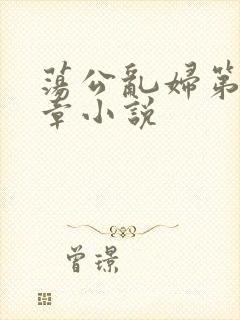 蕩公亂婦第
章小說
曾璟